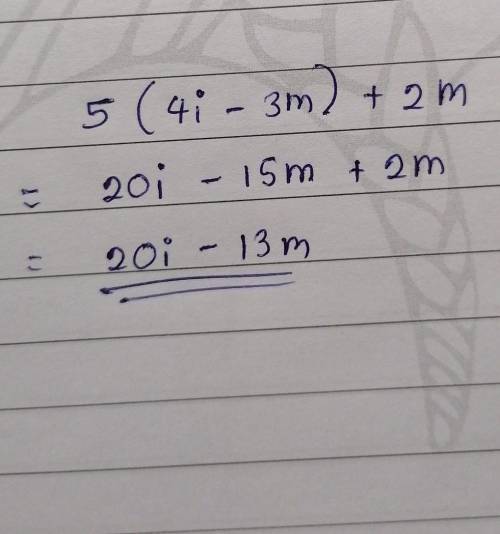 5 ( 4i - 3m ) + 2m
= 20i - 15m + 2m
= 20i - 13m